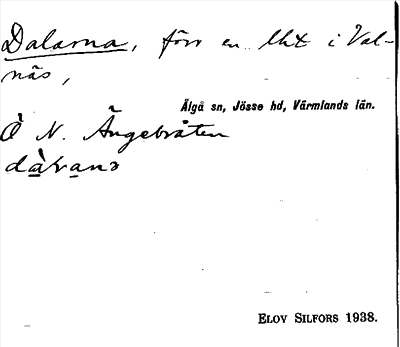 Dalarna, förr en lht i Val-
näs,
Älgå sn, Jösse hd, Värmlands län.
Å N. Ängebråten
dàrana
ELOV SILFORS 1938.